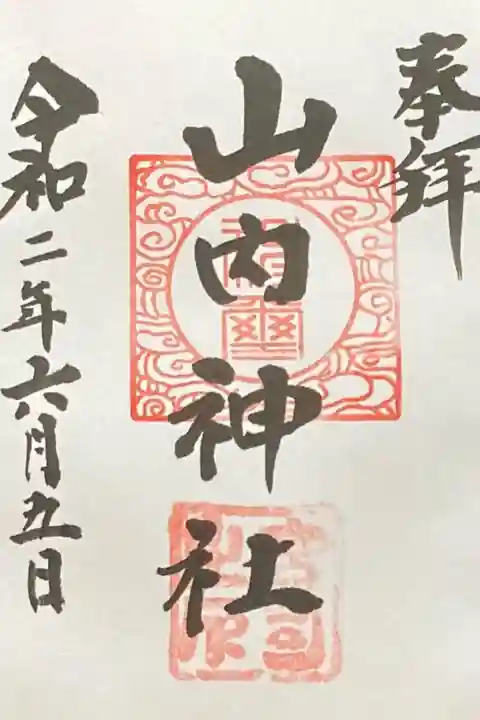 奉拝
山内神社
令和二年六月九日